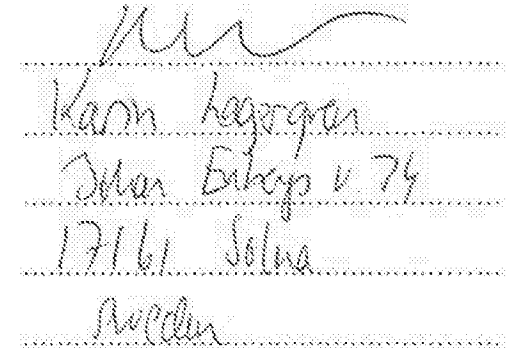 Karin Lagergren
Johan Enbergs v 74
17161 Solna
Sweden